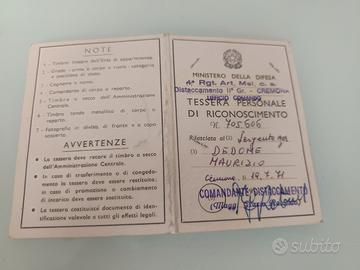 NOTE
1 - Timbro lineare dell'Ente di appartenenza.
2 - Grado - arma o corpo o ruolo - categoria
e posizione di stato.
3 - Cognome e nome.
4 - Comandante di corpo o reparto.
5 - Timbro a secco dell'Amministrazione
Centrale.
6 - Timbro tondo metallico di corpo o
reparto.
7 - Fotografia in divisa, di fronte e a capo
scoperto.
AVVERTENZE
La tessera deve recare il timbro a secco
dell'Amministrazione Centrale.
In caso di trasferimento o di congedamento
la tessera deve essere restituita;
in caso di promozione o cambiamento
di incarico deve essere sostituita.
La tessera costituisce documento di identificazione
valevole a tutti gli effetti legali.
MINISTERO DELLA DIFESA
4° Rgt. Art. Msl. c. a.
Distaccamento II° Gr. - CREMONA
UFFICIO COMANDO
TESSERA PERSONALE
DI RICONOSCIMENTO
N. 705606
Rilasciata al (2) Sergente
DEDONE
MAURIZIO
Cremona, li 19.7.71
COMANDANTE DISTACCAMENTO
subito